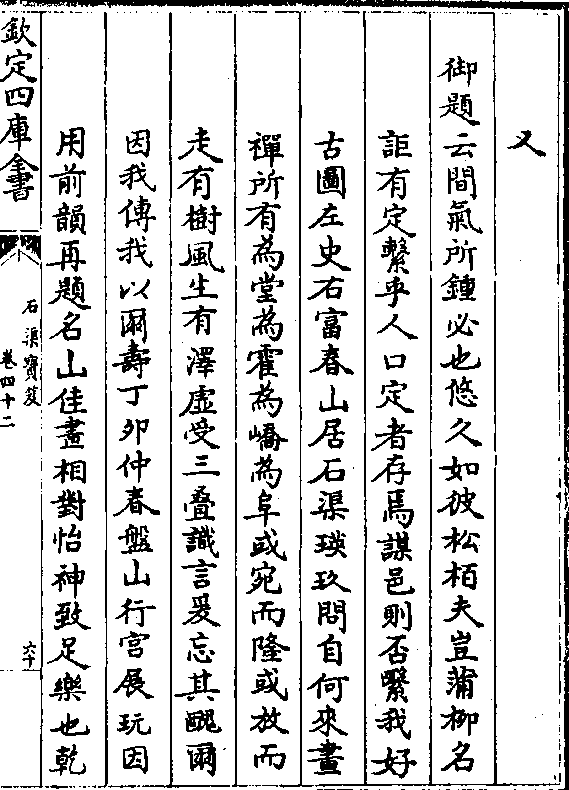 又
御題云間氣所鍾必也悠久如彼松栢夫豈蒲柳名
詎有定繫乎人口定者存焉謀邑則否繄我好
古圖左史右富春山居石渠琰玖問自何來畫
禪所有為堂為霍為嶠為阜或宛而隆或放而
走有樹風生有澤虛受三叠識言爰忘其醜爾
因我傳我以爾壽丁卯仲春盤山行宫展玩因
用前韻再題名山佳畫相對怡神致足樂也乾
欽定四庫全書
石渠寶笈
卷四十二
六十